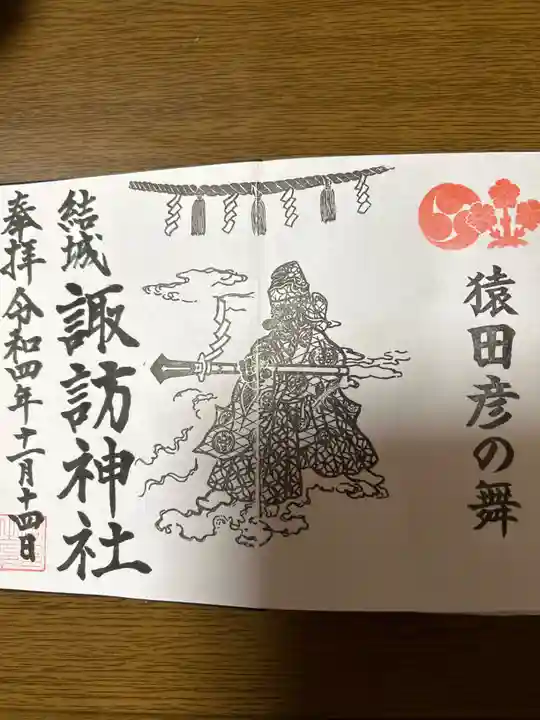 猿田彦の舞
結城
諏訪神社
奉拝令和四年十一月十四日